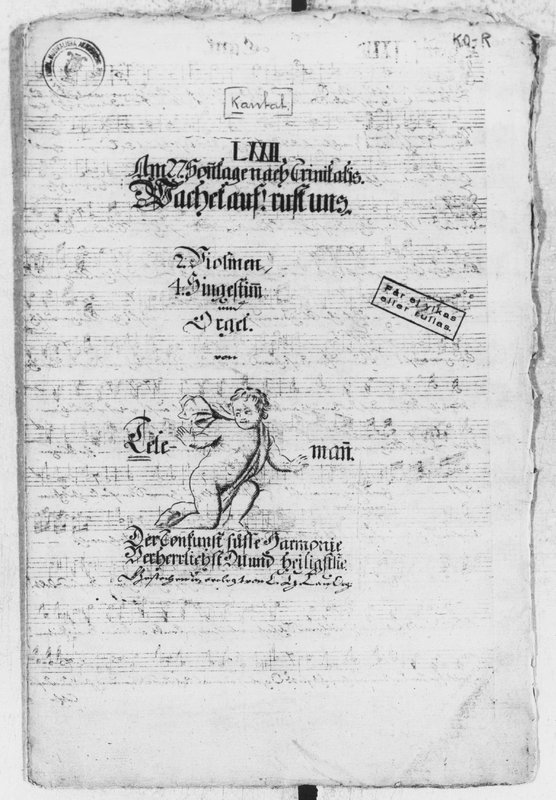 KO-R
Kantat
LXXII.
Am 27 Son̄tage nach Trinitatis.
Wachet auf! ruft uns.
2. Violinen
4. Singestim̄
und
Orgel.
von
Får ej vikas
eller rullas.
Tele- man̄.
Der Tonkunst süsse Harmonie
Verherrlichst Du und heiligst sie